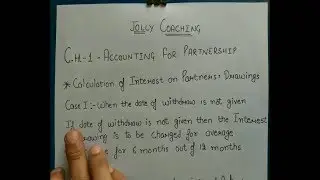 JOLLY COACHING
CH-1 - ACCOUNTING FOR PARTNERSHIP
* Calculation of Interest on Partners' Drawings
Case I :- When the date of withdraw is not given
If date of withdraw is not given then the Interest
drawing is to be charged for average
for 6 months out of 12 months